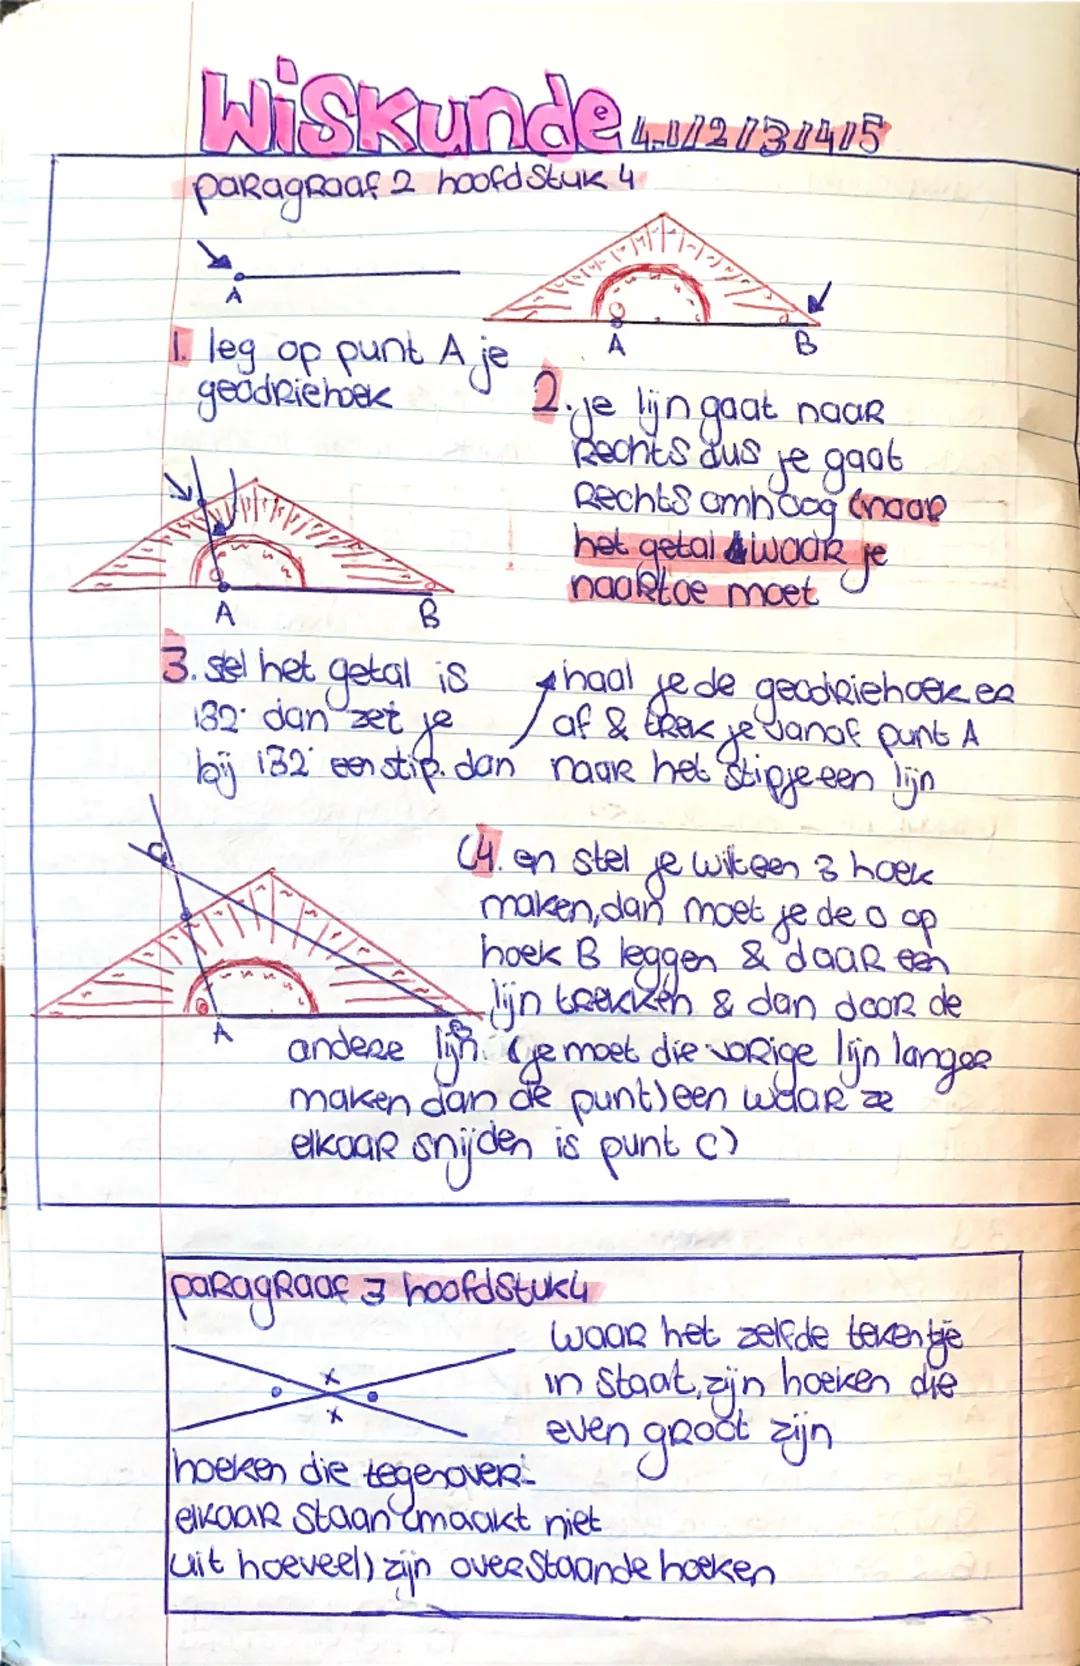 Wiskunde 4.1/2/3/4/5
paragraaf 2 hoofdstuk 4
A
A B
1. leg op punt A je
geodriehoek
2. je lijn gaat naar
Rechts dus je gaat
Rechts omhoog (naar
het getal waar je
naartoe moet
A B
3. stel het getal is
132° dan zet je
bij 132° een stip. dan
haal je de geodriehoek er
af & trek je vanaf punt A
naar het stipje een lijn
C
A B
(4. en stel je wilt een 3 hoek
maken, dan moet je de 0 op
hoek B leggen & daar een
lijn trekken & dan door de
andere lijn. (je moet die vorige lijn langer
maken dan de punt) een waar ze
elkaar snijden is punt C)
paragraaf 3 hoofdstuk 4
x
x
waar het zelfde tekentje
in staat, zijn hoeken die
even groot zijn
hoeken die tegenover
elkaar staan (maakt niet
uit hoeveel) zijn overstaande hoeken